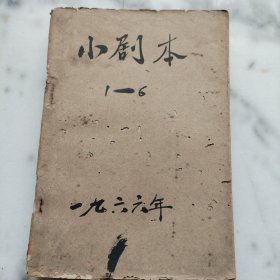 小剧本
1—6
一九六六年